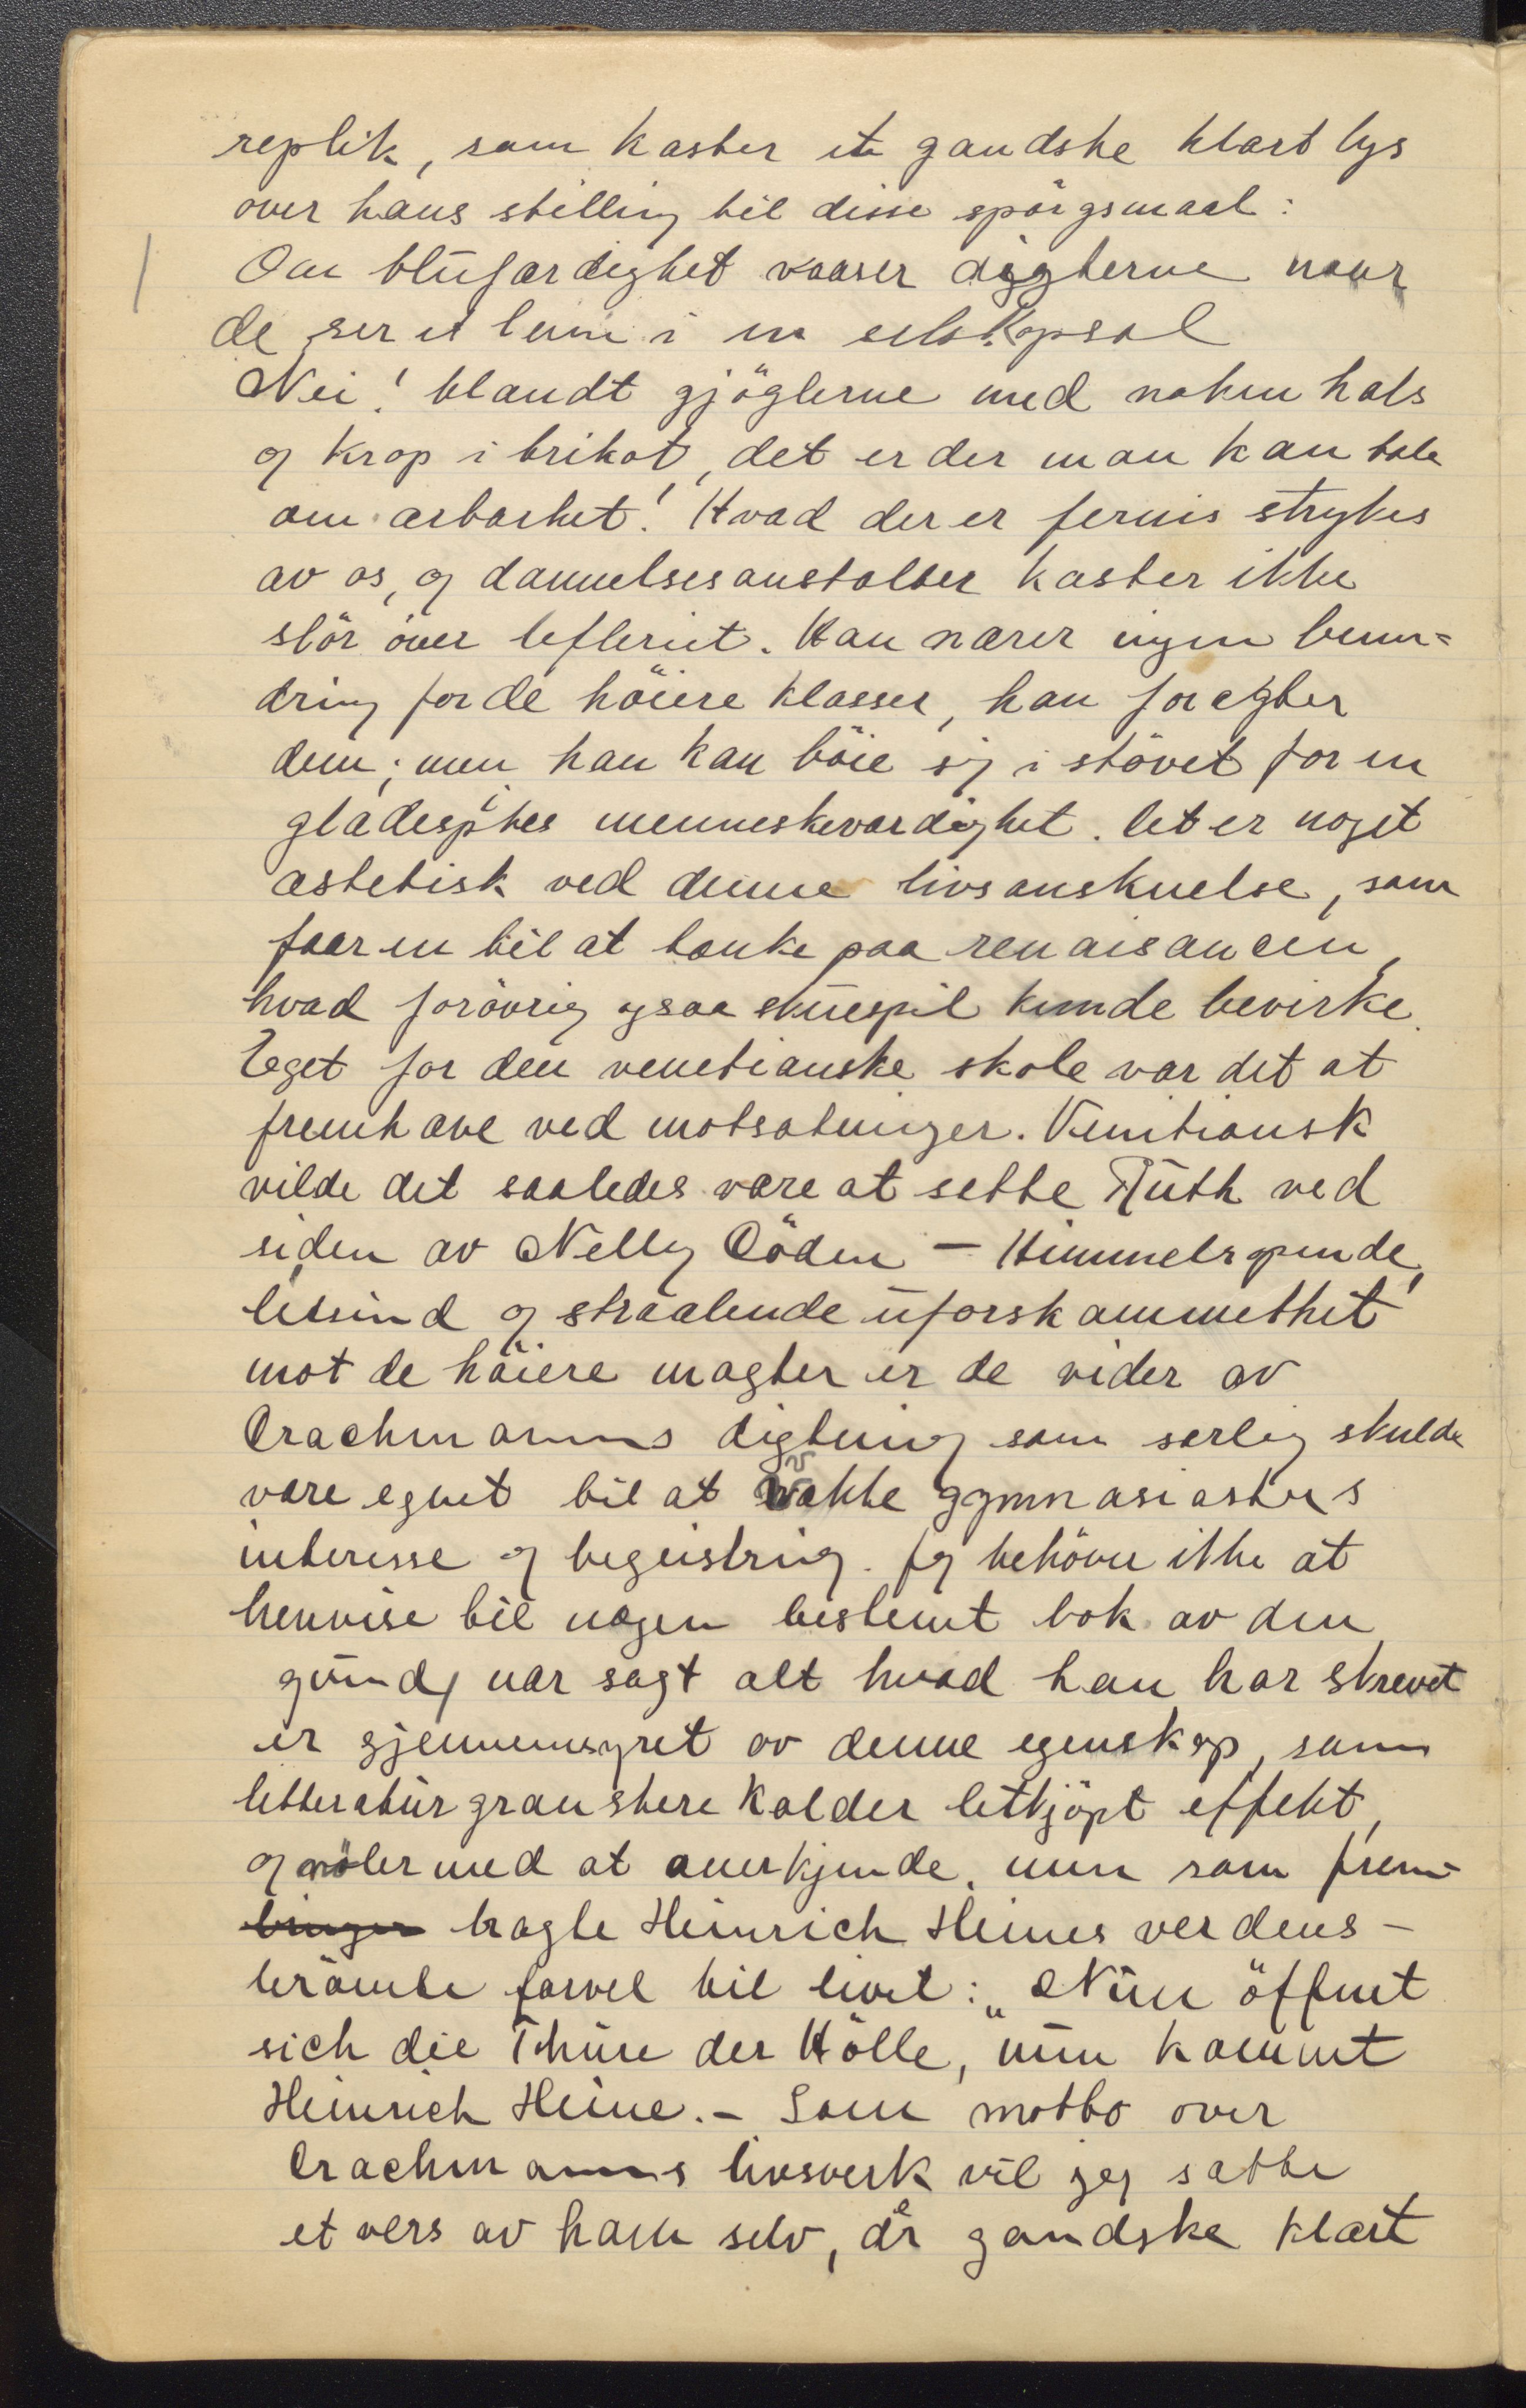 replik, som kaster et gandske klart lys
over hans stilling til disse spörgsmaal:
Om blufærdighet vaaser digterne naar
de ser et lem i en selskapsal
Nei! blandt gjöglerne med naken hals
og krop i trikot, det er der man kan tale
om ærbarhet! Hvad der er fernis strykes
av os, og dannelsesanstalter kaster ikke
slör över lefleriet. Han nærer ingen beun-
dring for de höiere klasser, han foragter
dem; men han kan böie sig i stövet for en
gladespikes menneskeværdighet. Let er noget
æstetisk ved denne livsanskuelse, som
faar en til at tænke paa renaisancen,
hvad forövrig ogsaa skuespil kunde bevirke.
Eget for den venetianske skole var det at
fremhæve ved motsætninger. Venitiansk
vilde det saaledes være at sette Ruth ved
siden av Nelly Döden – Himmelropende,
letsind og straalende uforskammethet
mot de höiere magter er de sider av
Drachmanns digtning som særlig skulde
være egnet til at vække gymnasiasters
interesse og begeistring. Jeg behöver ikke at
henvise til nogen bestemt bok av den
grund, nær sagt alt hvad han har skrevet
er gjennemsyret av denne egenskap, som
litteraturgranskere kalder letkjöpt effekt,
og nöler med at anerkjende, men som frem-
bringer bragte Heinrich Heines verdens-
berömte farvel til livet: „Nun öffnet
sich die Thüre der Hölle, nun kommt
Heinrich Heine. – Som motto over
Drachmanns livsverk vil jeg sætte
et vers av ham selv, der gandske klart